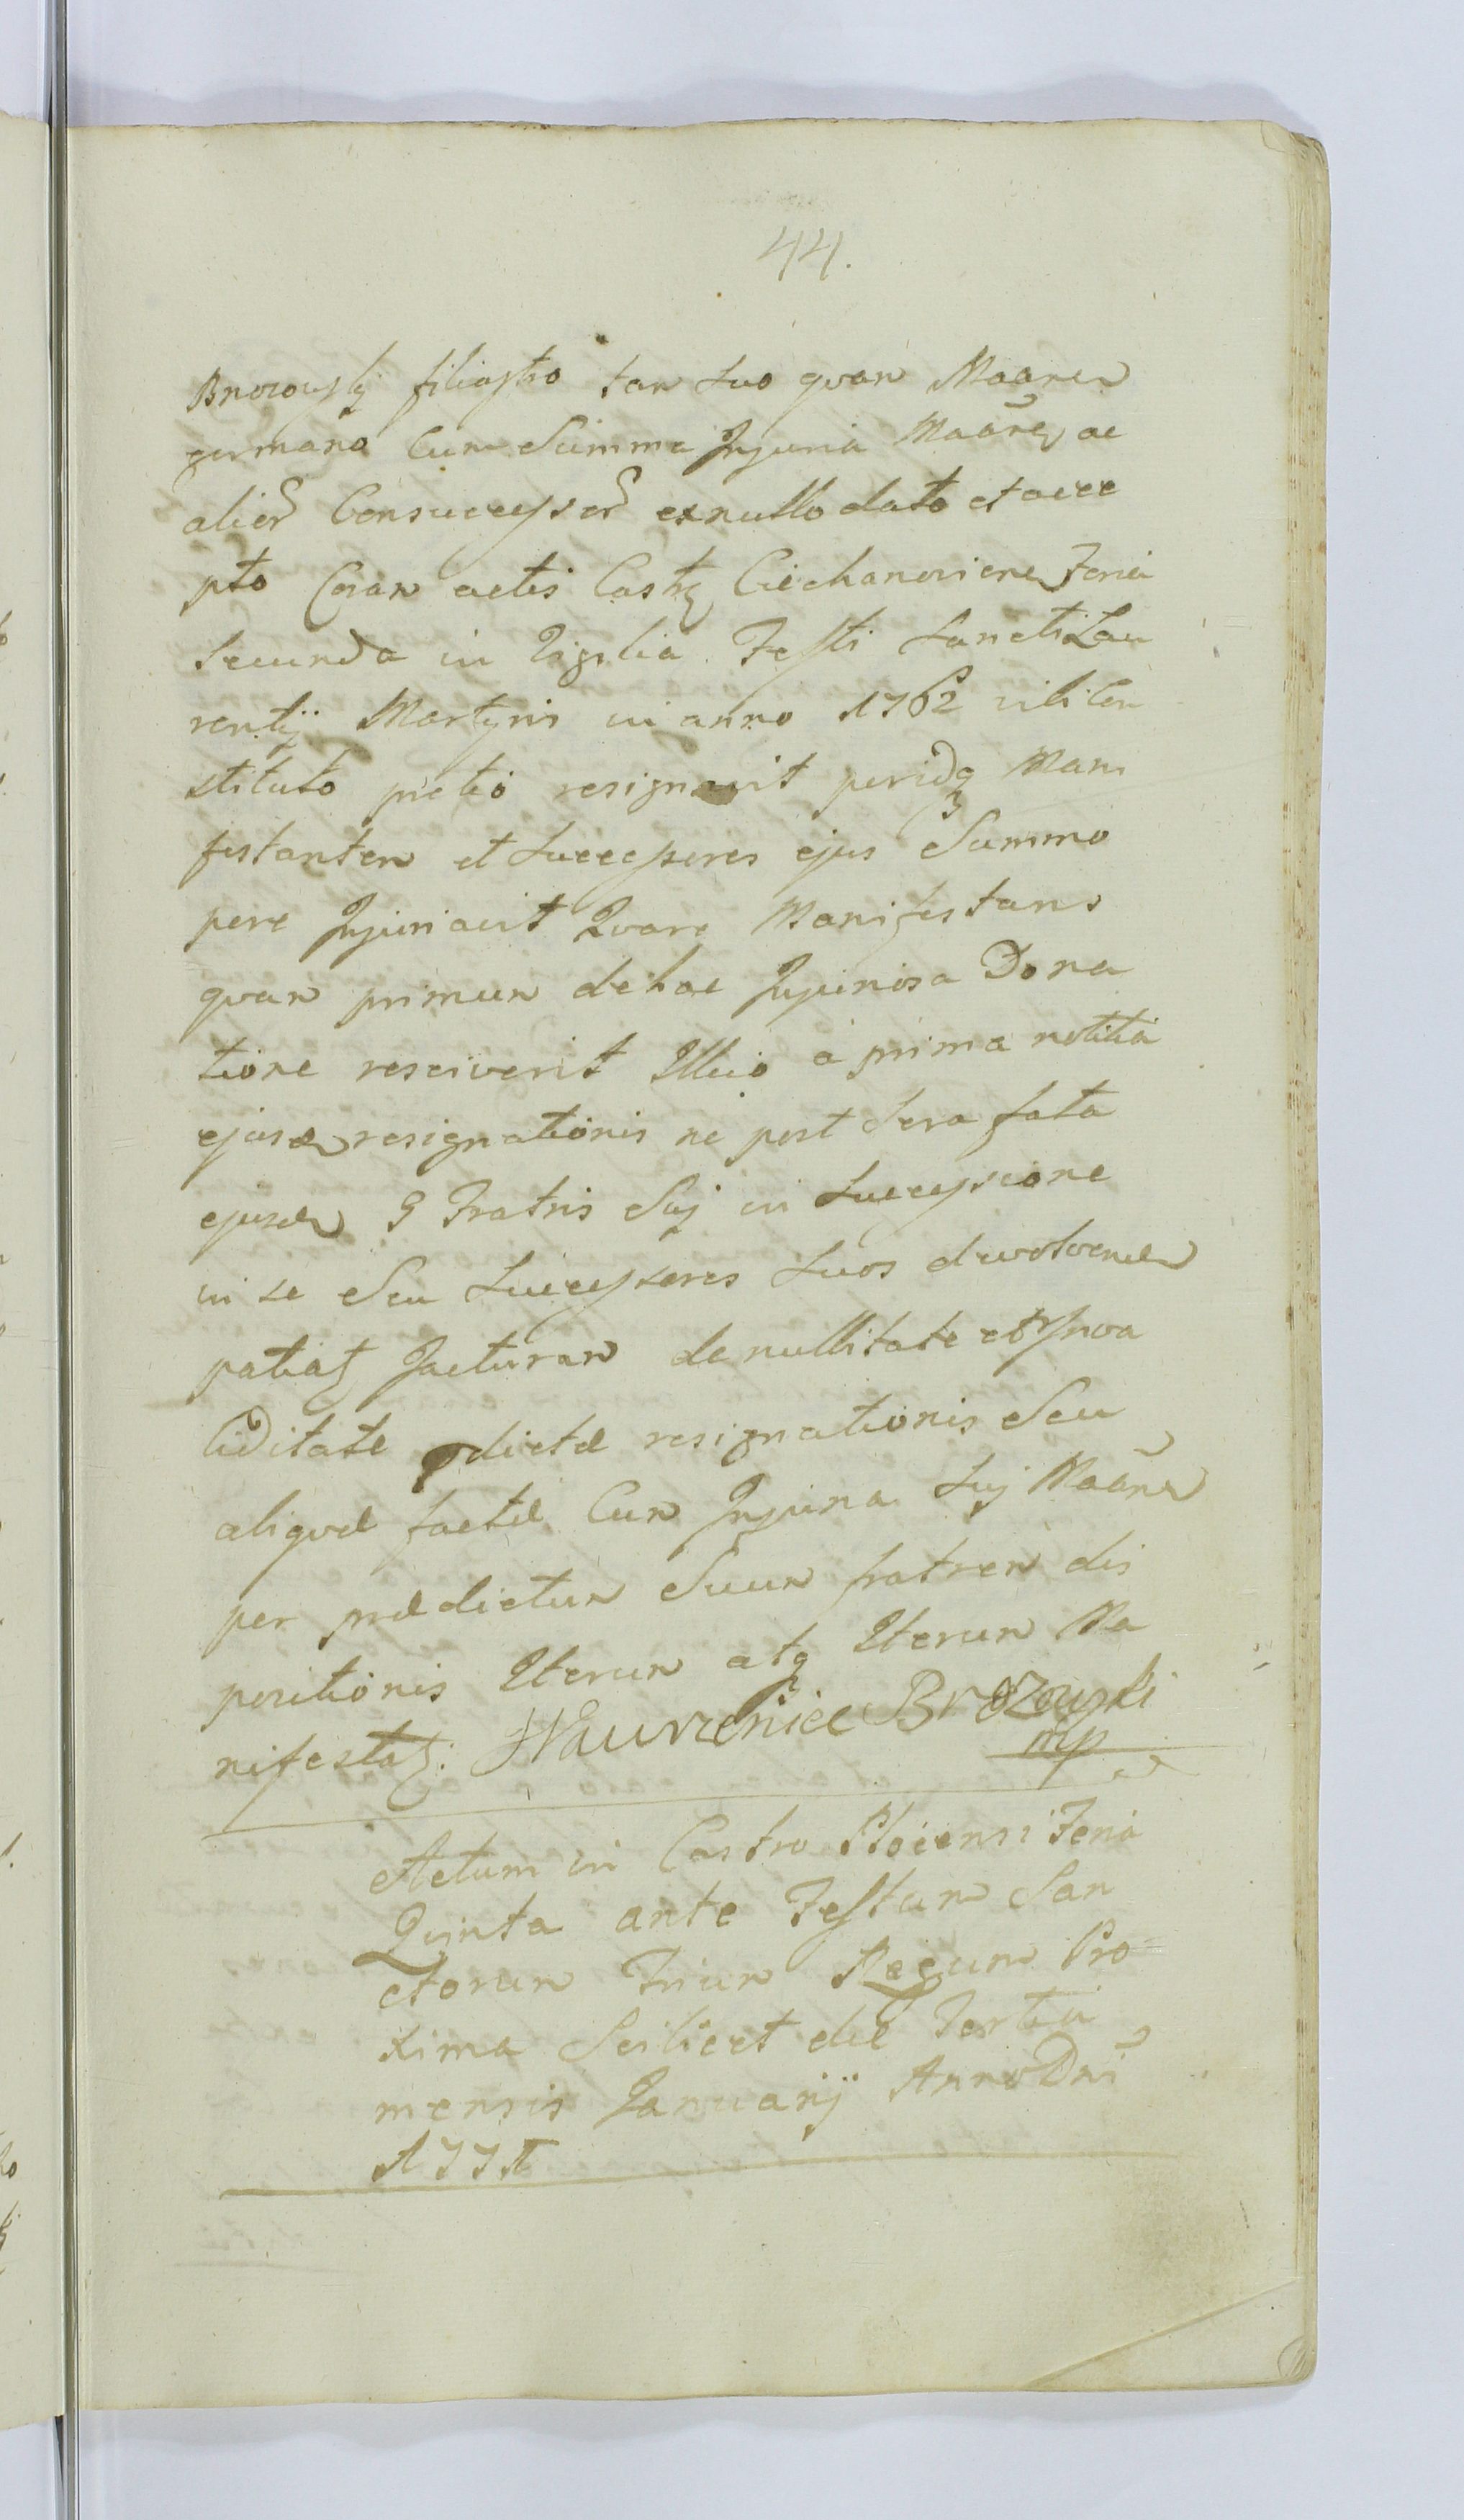 44.
Brozowskj filiastro tam suo qvam Maanen
germano Cum Summa Jnjuria Maãne, ac
alior̃ Consuccessor̃ ex nullo dato et acce
pto Coram actis Castr Ciechanovien Feria
Secunda in Vigilia Festi Sancti Lau
rentij Martyris in anno 1762 vili Con
stituto pretio resignavit peridq Mani
festantem et Successores ejus Summo
pere Jnjuriavit Qvare Manifestans
qvam primum de hac Jnjuriosa Dona
tione resciverit Illico à prima notitia
ejusdem resignationis ne post Sera fata
ejusdem G Fratris Suj in Successione
in se Seu Successores Suos devolvenda
patiat Jacturam de nullitate et Jnva
liditate pdictæ resignationis Seu
aliqvæ factæ Cum Jnjuria Suj Maãnen
per prædictum Suum fratrem dis
positionis Iterum atq Iterum Ma
nifestat: Wawrzeniec Brozowski
mp
Actum in Castro Plocensi Feria
Qvinta ante Festum San
ctorum Trium Regum Pro
xima Scilicet die Tertia
mensis Januarij Anno Dnĩ
1771